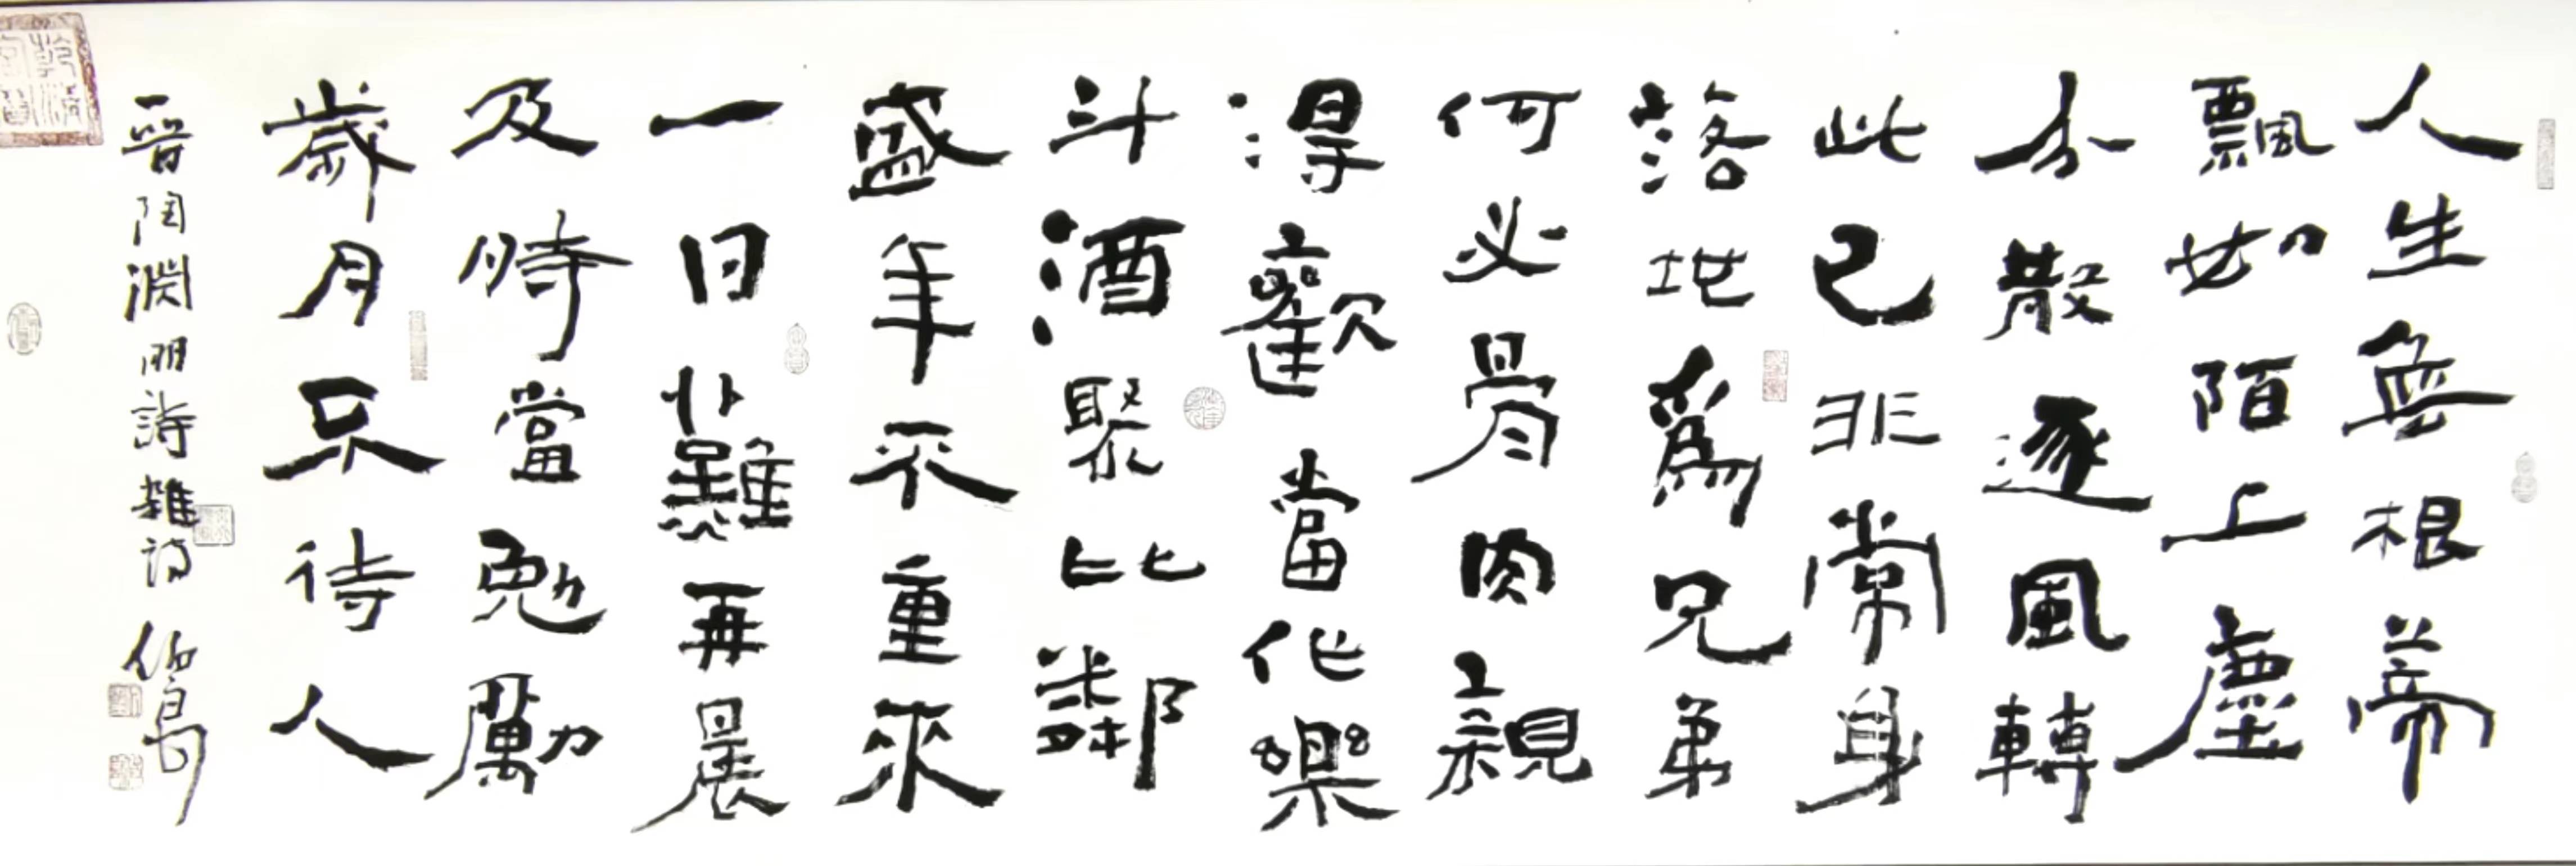 人生無根蒂
飄如陌上塵
分散逐風轉
此已非常身
落地為兄弟
何必骨肉親
得歡當作樂
斗酒聚比鄰
盛年不重來
一日難再晨
及時當勉勵
歲月不待人
晉陶淵明詩雜詩